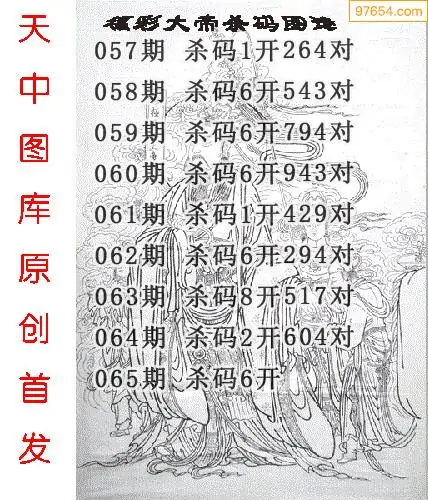 97654.com
福彩大帝杀码图迷
057期 杀码1开264对
058期 杀码6开543对
059期 杀码6开794对
060期 杀码6开943对
061期 杀码1开429对
062期 杀码6开294对
063期 杀码8开517对
064期 杀码2开604对
065期 杀码6开
天中图库原创首发